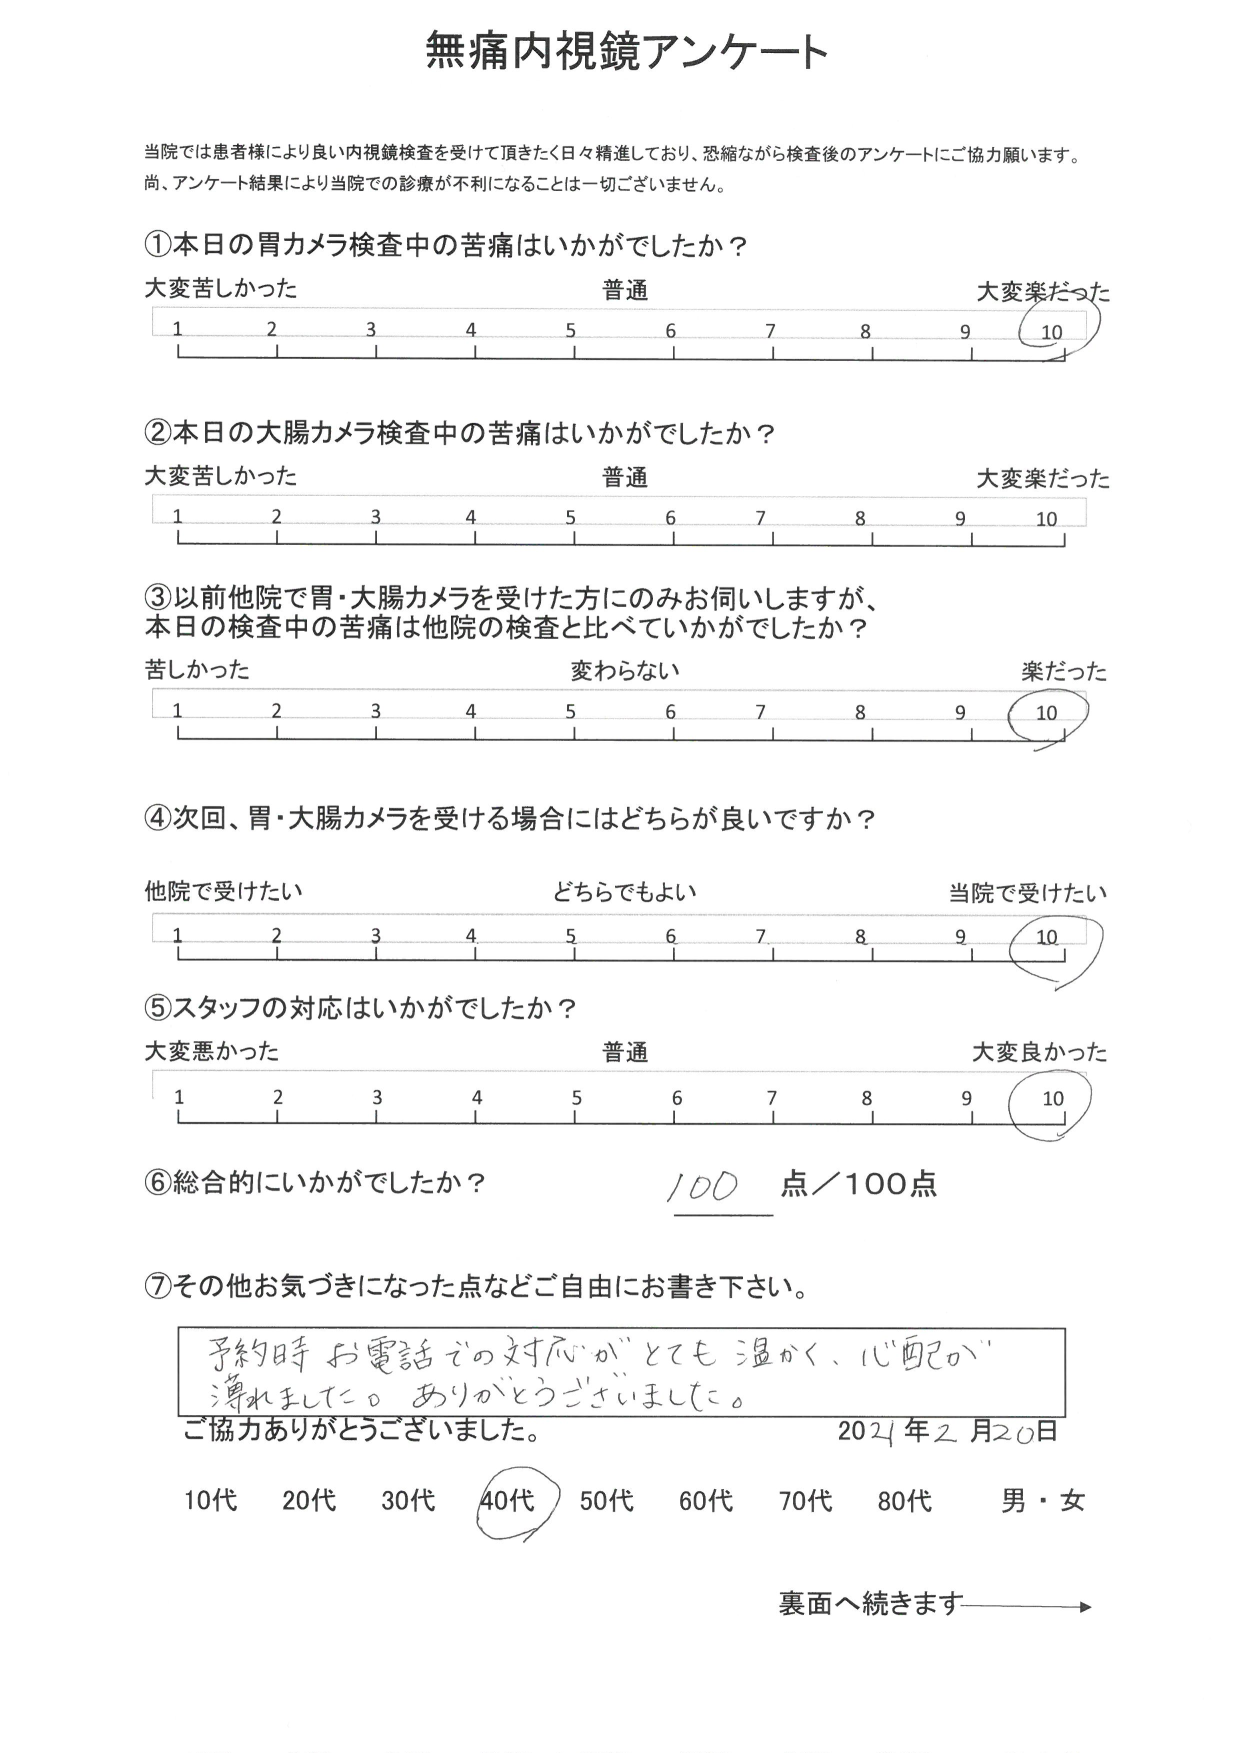 無痛内視鏡アンケート
当院では患者様により良い内視鏡検査を受けて頂きたく日々精進しており、恐縮ながら検査後のアンケートにご協力願います。
尚、アンケート結果により当院での診療が不利になることは一切ございません。
①本日の胃カメラ検査中の苦痛はいかがでしたか？
大変苦しかった 普通 大変楽だった
1 2 3 4 5 6 7 8 9 10
②本日の大腸カメラ検査中の苦痛はいかがでしたか？
大変苦しかった 普通 大変楽だった
1 2 3 4 5 6 7 8 9 10
③以前他院で胃・大腸カメラを受けた方にのみお伺いしますが、
本日の検査中の苦痛は他院の検査と比べていかがでしたか？
苦しかった 変わらない 楽だった
1 2 3 4 5 6 7 8 9 10
④次回、胃・大腸カメラを受ける場合にはどちらが良いですか？
他院で受けたい どちらでもよい 当院で受けたい
1 2 3 4 5 6 7 8 9 10
⑤スタッフの対応はいかがでしたか？
大変悪かった 普通 大変良かった
1 2 3 4 5 6 7 8 9 10
⑥総合的にいかがでしたか？ 100 点／100点
⑦その他お気づきになった点などご自由にお書き下さい。
予約時 お電話での対応が とても 温かく、心配が
薄れました。ありがとうございました。
ご協力ありがとうございました。 2021年2月20日
10代 20代 30代 40代 50代 60代 70代 80代 男・女
裏面へ続きます